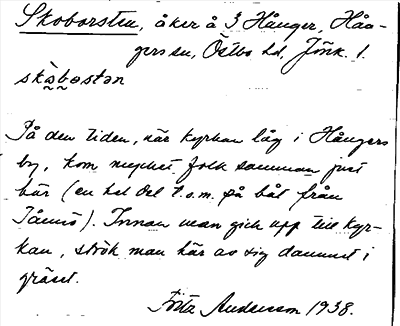 Skoborsten, åker å 3 Hånger, Hån-
gers sn, Östbo hd, Jönk. l.
skàbostan
På den tiden, när kyrkan låg i Hångers
by, kom mycket folk samman just
här (en hel del t.o.m. på båt från
Tånnö). Innan man gick upp till kyr-
kan, strök man här av sig dammet i
gräset.
Götz Andersson 1938.